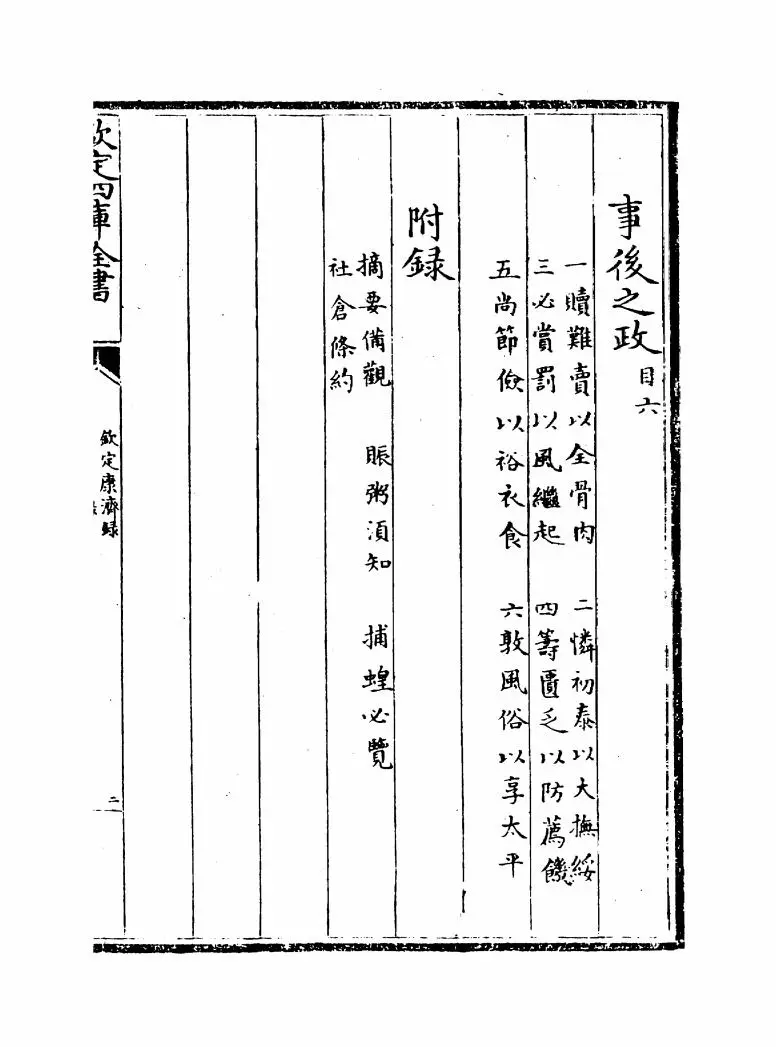 事後之政 目六
一贖難賣以全骨肉 二憐初泰以大撫綏
三必賞罰以風繼起 四籌匱乏以防薦饑
五尚節儉以裕衣食 六敦風俗以享太平
附錄
摘要備觀 賑粥須知 捕蝗必覽
社倉條約
欽定四庫全書
欽定康濟錄
二